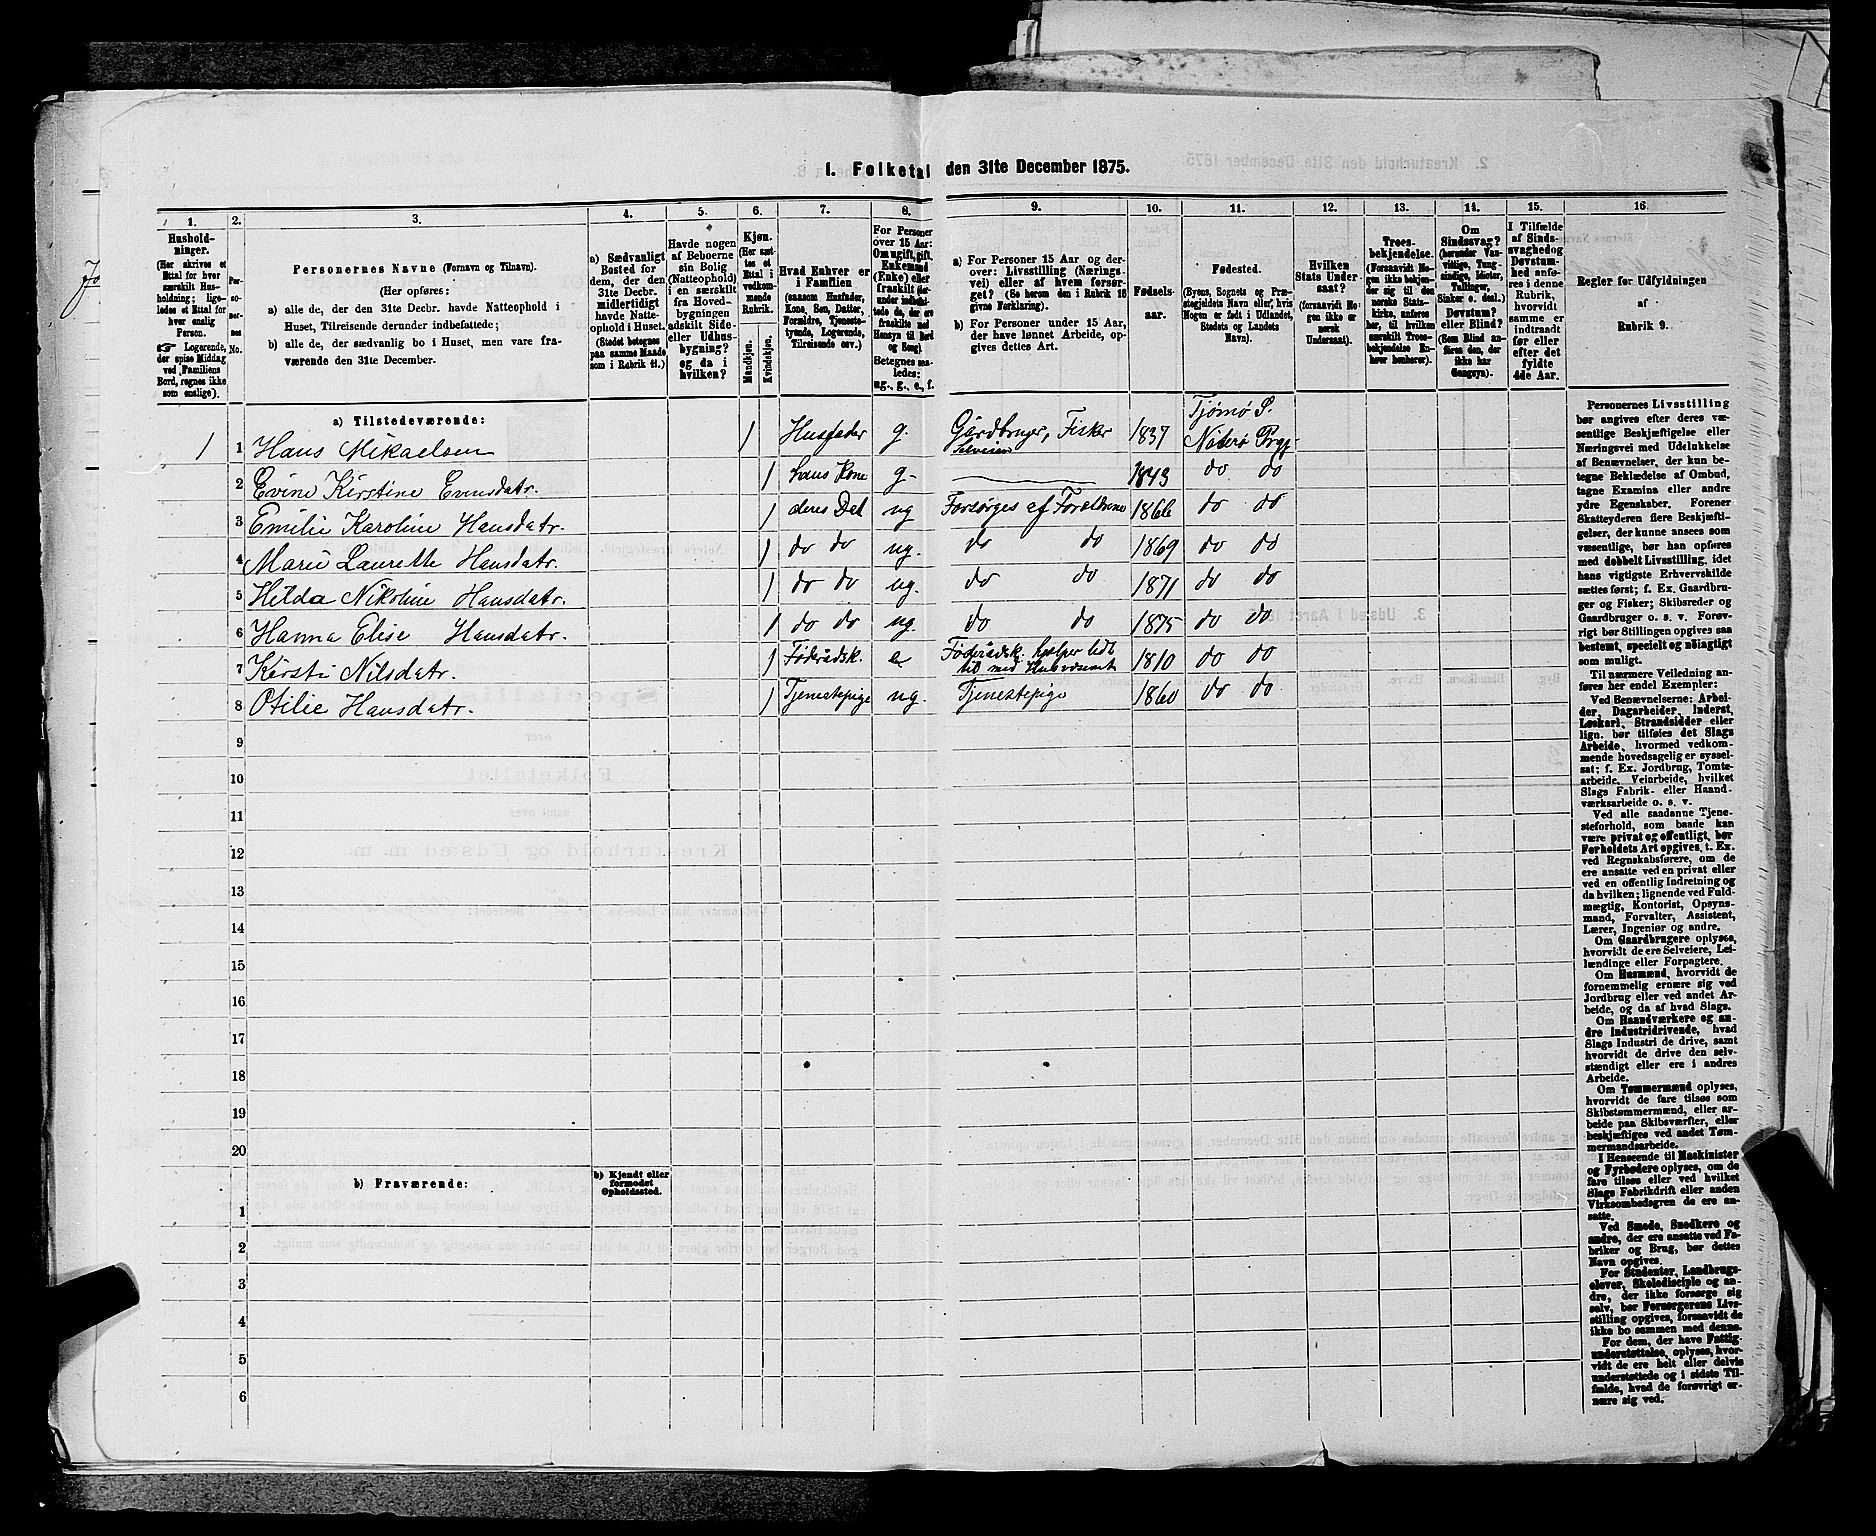 1. Folketal den 31te December 1875.
1. 2. 3. 4. 5. 6. 7. 8. 9. 10. 11. 12. 13. 14. 15. 16.
Hushold-
ninger.
(Her skrives et
Ettal for hver
særskilt Hus-
holdning; lige-
ledes et Ettal for
hver enslig
Person.
☞ Logerende,
der spise Middag
ved Familiens
Bord, regnes ikke
som enslige).
Per-
so-
ner-
nes
No.
Personernes Navne (Fornavn og Tilnavn).
(Her opføres:
a) alle de, der den 31te Decbr. havde Natteophold i
Huset, Tilreisende derunder indbefattede;
b) alle de, der sædvanlig bo i Huset, men vare fra-
værende den 31te December.
a) Sædvanligt
Bosted for
dem, der den
31te Decbr.
midlertidigt
havde Natte-
ophold i Huset.
(Stedet betegnes
paa samme Maade
som i Rubrik 11.)
Havde nogen
af Beboerne
sin Bolig
(Natteophold)
i en særskilt
fra Hoved-
bygningen
adskilt Side-
eller Udhus-
bygning?
og da i
hvilken?
Kjøn.
(Her sæt-
tes et
Ettal i
vedkom-
mende
Rubrik.
Mandkjøn.
Kvindekjøn.
Hvad Enhver er
i Familien
(saasom Husfader,
Kone, Søn, Datter,
Forældre, Tjeneste-
tyende, Logerende,
Tilreisende osv.)
For Personer
over 15 Aar:
Om ugift, gift,
Enkemand
(Enke) eller
fraskilt
Betegnes saa-
ledes:
ug., g., e., f.
a) For Personer 15 Aar og der-
over: Livsstilling (Nærings-
vei) eller af hvem forsør-
get? (Se herom den i Rubrik 16
givne Forklaring).
b) For Personer under 15 Aar,
der have lønnet Arbeide, op-
gives dettes Art.
Fødsels-
aar.
Fødested.
(Byens, Sognets og Præ-
stegjeldets Navn eller, hvis
Nogen er født i Udlandet,
Stedets og Landets
Navn).
Hvilken
Stats Under-
saat?
(forsaavidt No-
gen ikke er
norsk
Undersaat).
Troes-
bekjendelse.
(Forsaavidt No-
gen ikke bekjen-
der sig til den
norske Stats-
kirke, anføres
her, til hvilken
særskilt Troes-
bekjendelse En-
hver henhører).
Om
Sindssvag?
(herunder Van-
vittige, Tung-
sindige, Idioter,
Tullinger,
Sinker o. desl.)
Døvstum?
eller Blind?
(Som Blind an-
føres den, der
ikke har
Gangsyn).
I Tilfælde
af Sinds-
svaghed og
Døvstum-
hed anfø-
res i denne
Rubrik,
hvorvidt
samme er
indtraadt
før eller
efter det
fyldte
4de Aar.
Regler for Udfyldningen
af
Rubrik 9.
a) Tilstedeværende:
1 1 Hans Mikaelsen 1 Husfader g. Gårdbruger, Fisker Selveier 1837 Tjømø S. Nøterø Prgj.
2 Evine Kirstine Evensdatr. 1 hans Kone g. 1843 do do
3 Emilie Karoline Hansdatr. 1 deres Dat ug Forsørges af Forældrene 1866 do do
4 Marie Laurette Hansdatr. 1 do do ug. do do 1869 do do
5 Hilda Nikoline Hansdatr. 1 do do ug. do do 1871 do do
6 Hanna Elise Hansdatr. 1 do do ug. do do 1875 do do
7 Kirsti Nilsdatr. 1 Føderådsk. e Føderådsk. hjelper lidt til med Husvæsenet 1810 do do
8 Otilie Hansdatr. 1 Tjenestepige ug. Tjenestepige 1860 do do
9
10
11
12
13
14
15
16
17
18
19
20
b) Fraværende:
b) Kjendt eller
formodet
Opholdssted.
1
2
3
4
5
6
Personernes Livsstilling
bør angives efter deres væ-
sentlige Beskjæftigelse eller
Næringsvei med Udelukkelse
af Benævnelser, der kun be-
tegne Beklædelse af Ombud,
tagne Examina eller andre
ydre Egenskaber. Forener
Skatteyderen flere Beskjæfti-
gelser, der kunne ansees som
væsentlige, bør han opføres
med dobbelt Livsstilling, idet
hans vigtigste Erhvervskilde
sættes først; f. Ex. Gaardbru-
ger og Fisker; Skibsreder og
Gaardbruger o. s. v. Forøv-
rigt bør Stillingen opgives saa
bestemt, specielt og nøiagtigt
som muligt.
Til nærmere Veiledning an-
føres her endel Exempler:
Ved Benævnelserne: Arbei-
der, Dagarbeider, Inderst,
Løskarl, Strandsidder eller
lign. bør tilføies det Slags
Arbeide, hvormed vedkom-
mende hovedsagelig er syssel-
sat; f. Ex. Jordbrug, Tomte-
arbeide, Veiarbeide, hvilket
Slags Fabrik- eller Haand-
værksarbeide o. s. v.
Ved alle saadanne Tjene-
steforhold, som baade kan
være privat og offentligt, bør
Forholdets Art opgives, t. Ex.
ved Regnskabsførere, om de
ere ansatte ved en privat eller
ved en offentlig Indretning og
da hvilken; lignende ved Fuld-
mægtig, Kontorist, Opsyns-
mand, Forvalter, Assistent,
Lærer, Ingeniør og andre.
Om Gaardbrugere oplyses,
hvorvidt de ere Selveiere, Lei-
lændinge eller Forpagtere.
Om Husmænd, hvorvidt de
fornemmelig ernære sig ved
Jordbrug eller ved andet Ar-
beide, og da af hvad Slags.
Om Haandværkere og an-
dre Industridrivende, hvad
Slags Industri de drive, samt
hvorvidt de drive den selv-
stændigt eller ere i andres
Arbeide.
Om Tømmermænd oplyses,
hvorvidt de fare tilsøs som
Skibstømmermænd, eller ar-
beide paa Skibsværfter, eller
beskjæftiges ved andet Tøm-
mermandsarbeide.
I Henseende til Maskinister
og Fyrbødere oplyses, om de
fare tilsøs eller ved hvilket
Slags Fabrikdrift eller anden
Virksomhedsgren de ere an-
satte.
Ved Smede, Snedkere og
andre, der ere ansatte ved Fa-
briker og Brug, bør dettes
Navn opgives.
For Studenter, Landbrugs-
elever, Skoledisciple og an-
dre, der ikke forsørge sig
selv, bør Forsørgerens Livs-
stilling opgives, forsaavidt de
ikke bo sammen med denne.
For dem, der have Fattig-
understøttelse, oplyses, hvor-
vidt de ere helt eller delvis
understøttede og i sidste Til-
fælde, hvad de forøvrigt er-
nære sig ved.